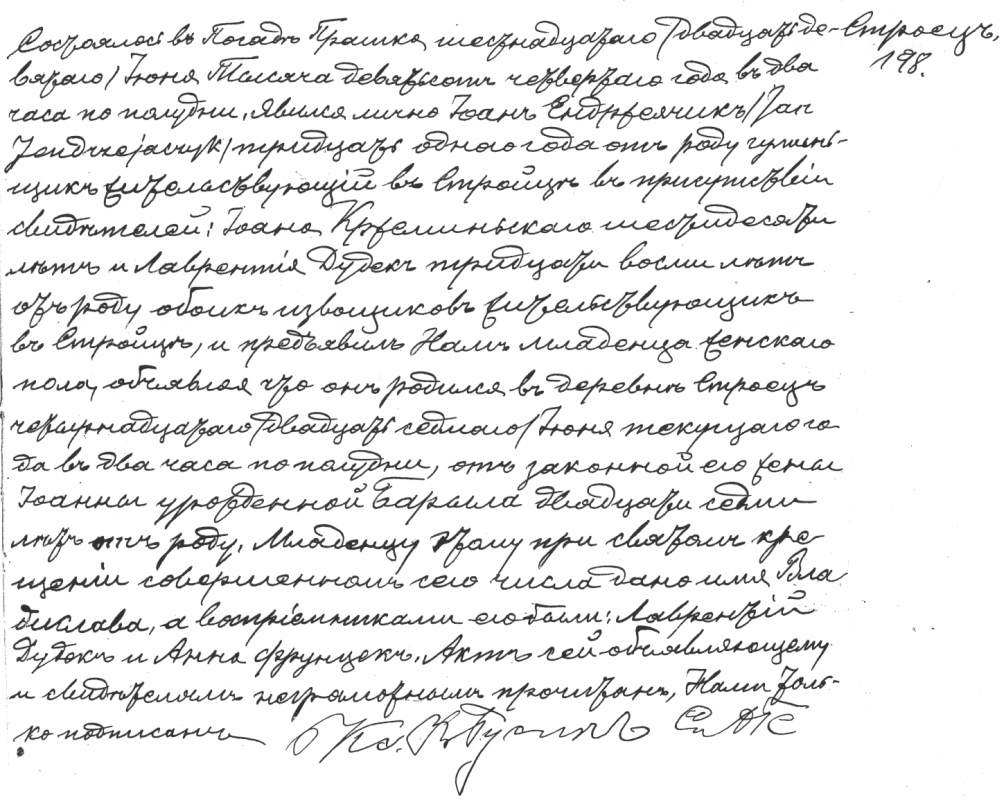 Состоялось въ Посадѣ Прашка шестнадцатаго /двадцать де- Строецъ,
вятаго/ Іюня Тысяча девятьсотъ четвертаго года въ два 198.
часа по полудни, явился лично Іоанъ Ендржеячикъ /Jan
Jendrzejaczyk/ тридцать одного года отъ роду
жительствующій въ Стройцѣ въ присутствіи
свидѣтелей: Іоана шестидесяти
лѣтъ и Лаврентія Дудекъ тридцати восми лѣтъ
отъ роду обоихъ извощиковъ жительствующихъ
въ Стройцѣ, и предъявилъ Намъ младенца женскаго
пола, объявляя что онъ родился въ деревнѣ Строецъ
четырнадцатаго /двадцать седмаго/ Іюня текущаго го-
да въ два часа по полудни, отъ законной его жены
Іоанны урожденной Барыла двадцати седми
лѣтъ отъ роду. Младенцу этому при святомъ кре-
щеніи совершенномъ сего числа дано имя Вла
дислава, а воспріемниками его были: Лаврентій
Дудекъ и Анна Актъ сей объявляющему
и свидѣтелямъ неграмотнымъ прочитанъ, Нами толь-
ко подписанъ